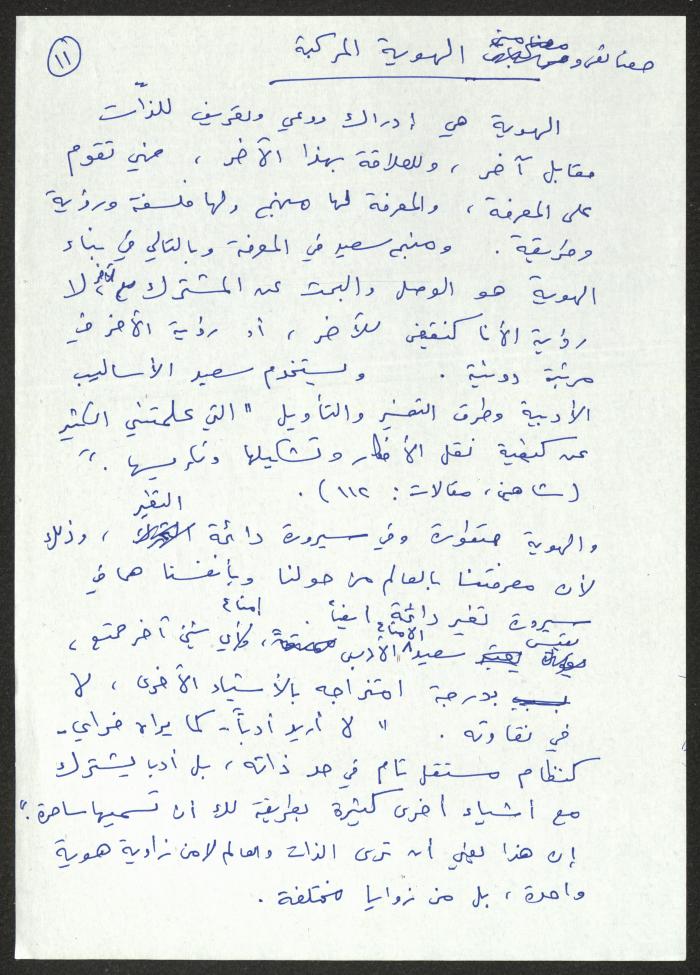 ١١
الهوية المركبة
الهوية هي إدراك ووعي وتعريف للذّات
مقابل آخر ، وللعلاقة بهذا الآخر ، فهي تقوم
على المعرفة ، والمعرفة لها منهج ولها فلسفة ورؤية
وطريقة . ومنهج سعيد في المعرفة وبالتالي في بناء
الهوية هو الوصل والبحث عن المشترك مع الآخر ، لا
رؤية الأنا كنقيض للآخر ، أو رؤية الآخر في
مرتبة دونية . ويستخدم سعيد الأساليب
الأدبية وطرق التفسير والتأويل "التي علمتني الكثير
عن كيفية نقل الأفكار وتشكيلها وتكريسها ."
(شاهين، مقالات : ١١٢) .
التغير
والهوية متطورة وفي سيرورة دائمة ، وذلك
لأن معرفتنا بالعالم من حولنا وبأنفسنا هما في
سيرورة تغير دائمة أيضاً .
سعيد الأدب ، ولأي شيء آخر ممتع ،
بدرجة امتزاجه بالأشياء الأخرى ، لا
في نقاوته . " لا أريد أدباً - كما يراه فراي -
كنظام مستقل تام في حد ذاته ، بل أدبا يشترك
مع أشياء أخرى كثيرة بطريقة لك أن تسميها ساحرة ."
إن هذا يعني أن ترى الذات والعالم لا من زاوية هوية
واحدة ، بل من زوايا مختلفة .